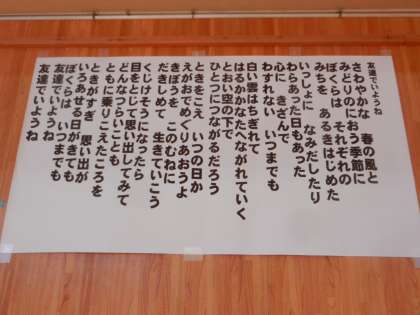 友達でいようね
さわやかな　春の風と
みどりのにおう季節に
ぼくらは　それぞれの
みちを　あるきはじめた
いっしょに　なみだしたり
わらあった日もあった
心に　きざんで
わすれない　いつまでも
白い雲はちぎれて
はるかかなたへながれていく
とおい空の下で
ひとつにつながるだろう
ときをこえ　いつの日か
えがおでめぐりあおうよ
きぼうを　このむねに
だきしめて　生きていこう
くじけそうになったら
目をとじて思い出してみて
どんなつらいことも
ともに乗りこえたころを
ときがすぎ　思い出が
いろあせる日がきても
ぼくらは　いつまでも
友達でいようね
友達でいようね